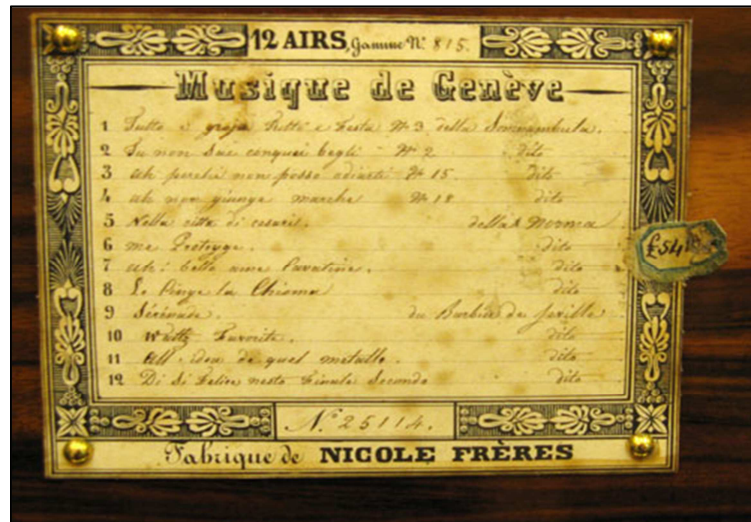 12 AIRS, Gamme Nº 815.
Musique de Genève
1 Tutto è gioja tutti e festa Nº 3 della Sonnambula.
2 Tu non Sai Nº 2 dito
3 Ah perchè non posso odiarti Nº 15. dito
4 Ah non giunge marche Nº 18 dito
5 Nella citta di cesari. della Norma
6 me Protegge. dito
7 Ah! bello Cavatine. dito
8 Le Pinge la Chioma dito
9 Sérénade. du Barbier de Seville
10 Waltz Favorite. dito
11 All idea de quel metallo. dito
12 Di Si Felice nesto Finale Secondo dito
£54
Nº 25114.
Fabrique de NICOLE FRÈRES